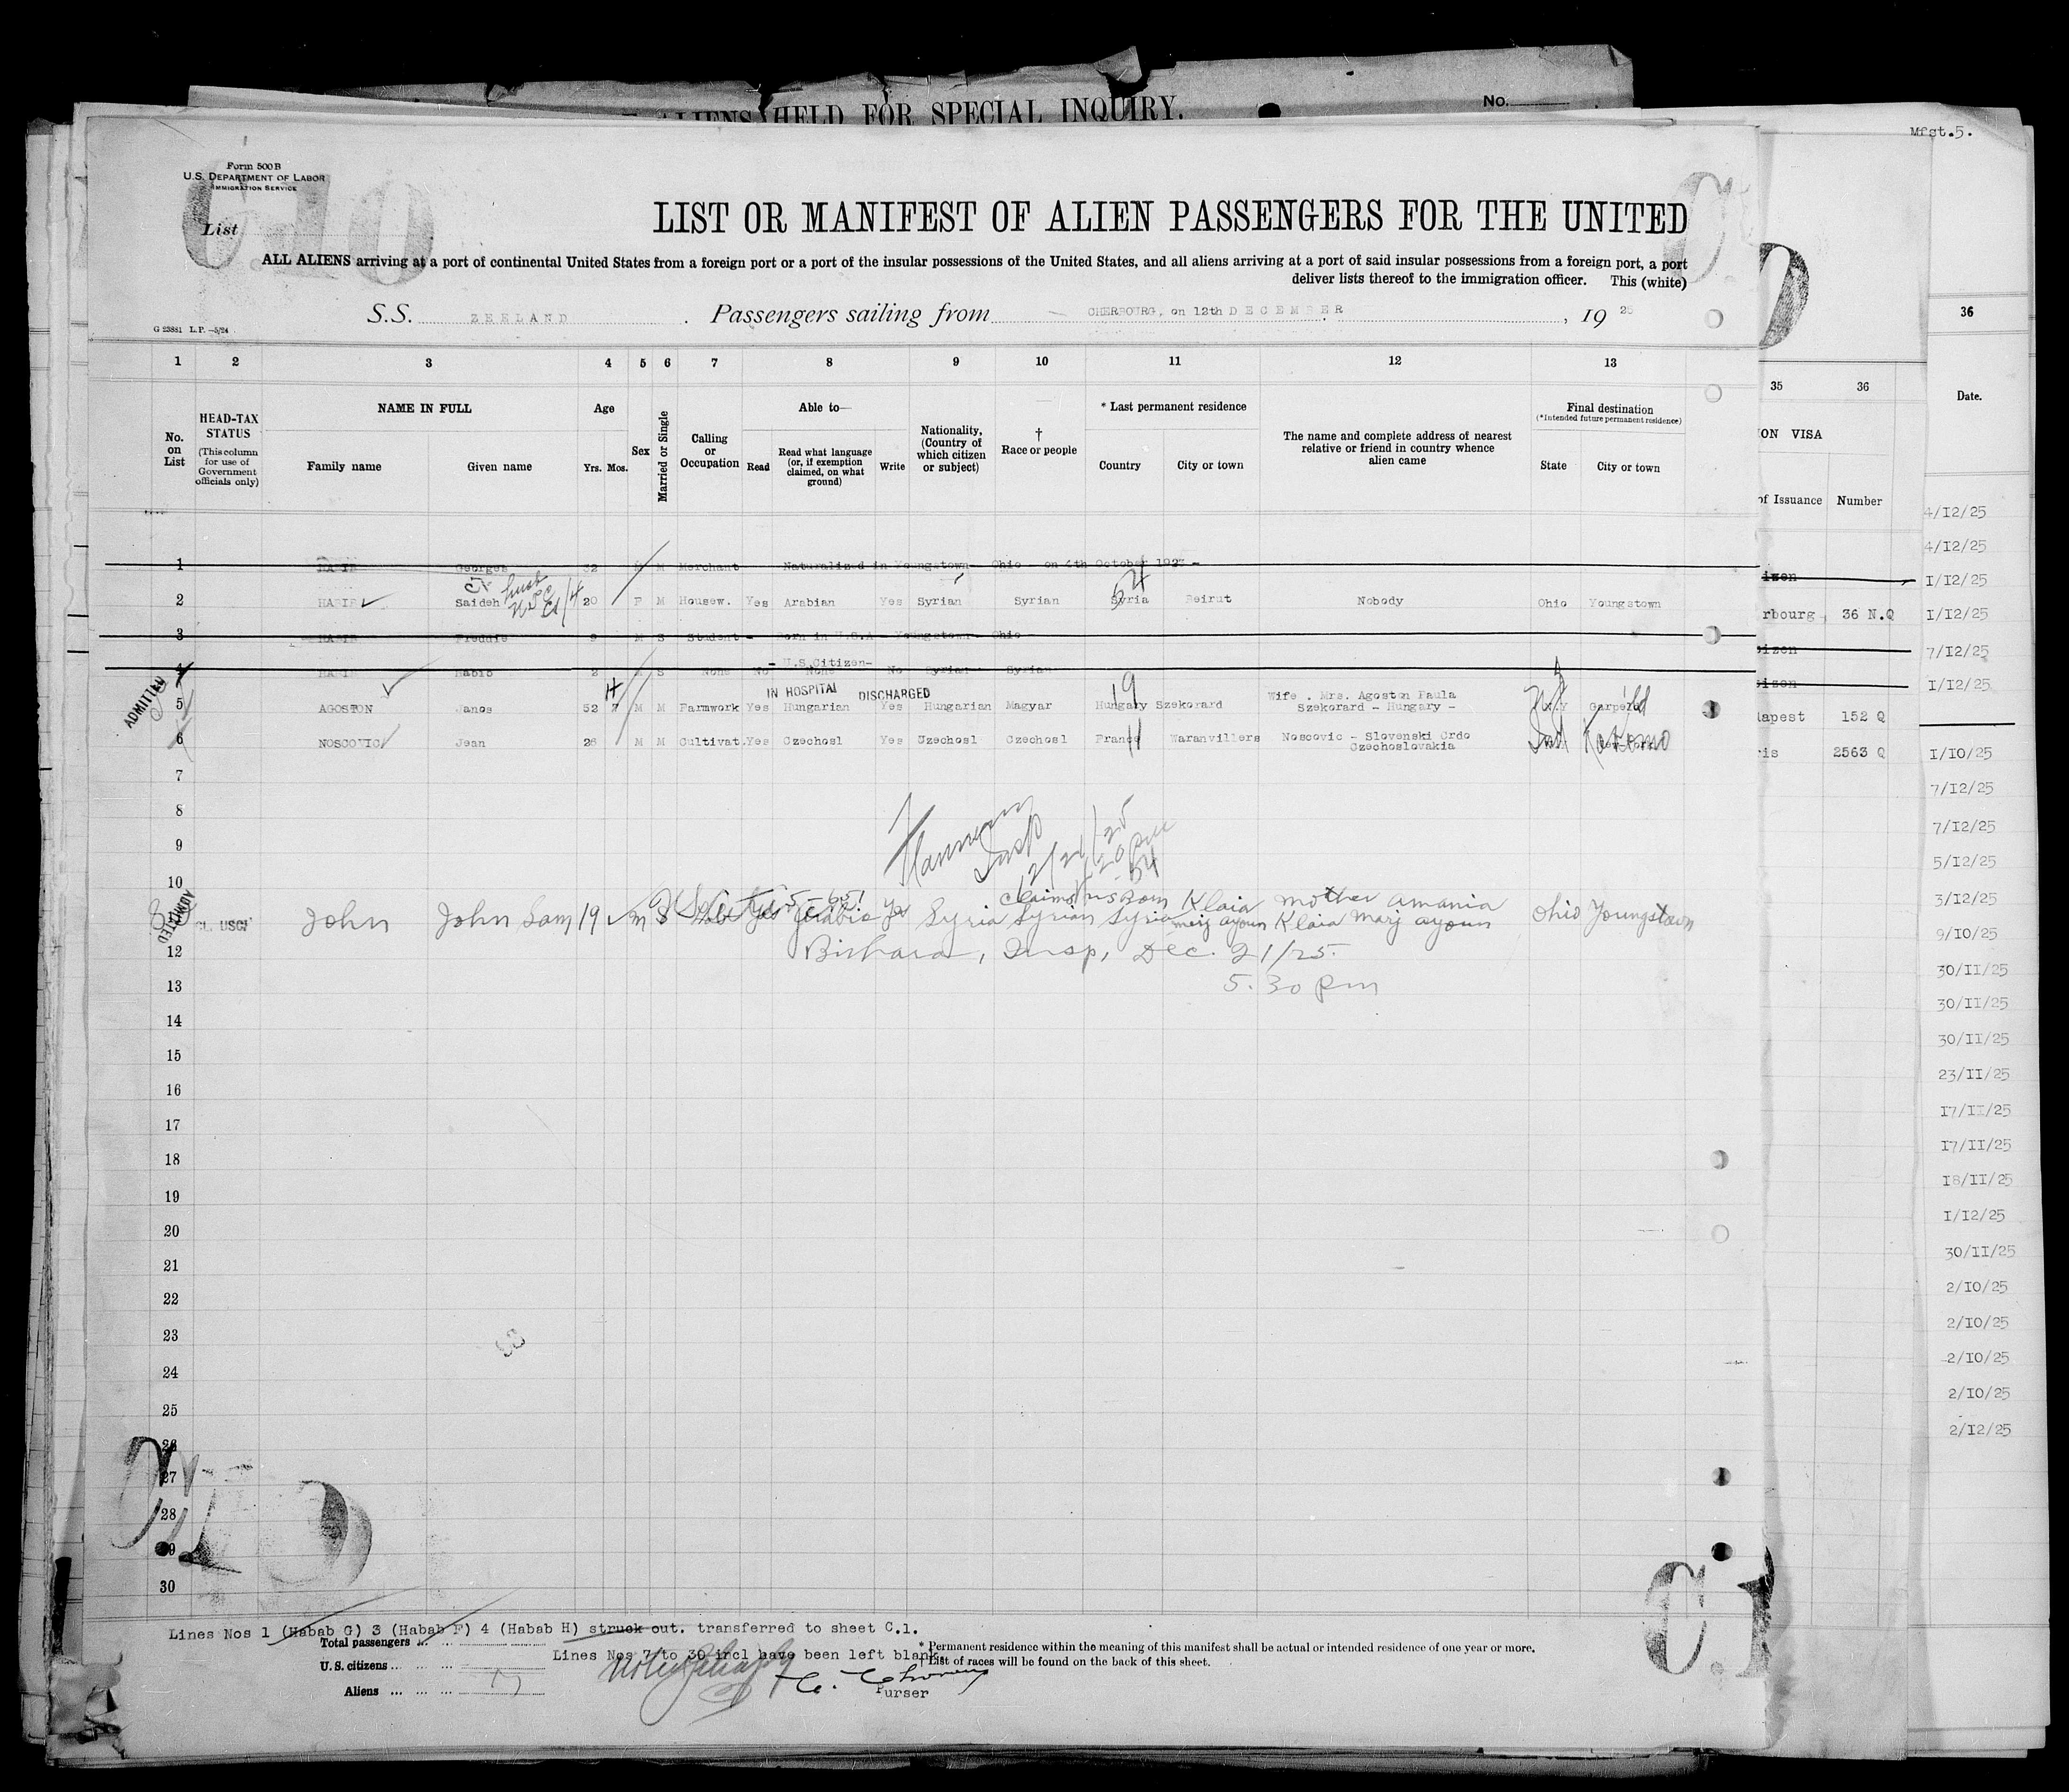 ALIENS HELD FOR SPECIAL INQUIRY.
No.
Mfst.5.
Form 500B
U.S. DEPARTMENT OF LABOR
IMMIGRATION SERVICE
List
LIST OR MANIFEST OF ALIEN PASSENGERS FOR THE UNITED
ALL ALIENS arriving at a port of continental United States from a foreign port or a port of the insular possessions of the United States, and all aliens arriving at a port of said insular possessions from a foreign port, a port
deliver lists thereof to the immigration officer. This (white)
S.S. ZEELAND. Passengers sailing from CHERBOURG, on 12th DECEMBER, 19 25
G 23881 L.P.—5/24
1 2 3 4 5 6 7 8 9 10 11 12 13
35 36
36
No. on List
HEAD-TAX STATUS
(This column for use of Government officials only)
NAME IN FULL
Family name Given name
Age
Yrs. Mos.
Sex
Married or Single
Calling or Occupation
Able to—
Read
Read what language (or, if exemption claimed, on what ground)
Write
Nationality, (Country of which citizen or subject)
† Race or people
* Last permanent residence
Country City or town
The name and complete address of nearest relative or friend in country whence alien came
Final destination
(*Intended future permanent residence)
State City or town
ION VISA
of Issuance Number
Date.
1 HABIB Georges 32 M M Merchant Naturalized in Youngstown Ohio - on 4th October 1923 -
2 HABIB Saideh 20 F M Housew. Yes Arabian Yes Syrian Syrian Syria Beirut Nobody Ohio Youngstown
3 HABIB Freddie 9 M S Student - Born in U.S.A - Youngstown - Ohio -
- U.S.Citizen-
4 HABIB Habib 2 M S None No None No Syrian Syrian
IN HOSPITAL DISCHARGED
ADMITTED
5 AGOSTON Janos 52 7 M M Farmwork Yes Hungarian Yes Hungarian Magyar Hungary Szekorard Wife . Mrs. Agoston Paula
Szekorard - Hungary - N.Y Garfield
6 NOSCOVIC Jean 26 M M Cultivat. Yes Czechosl Yes Czechosl Czechosl France Waranvillers Noscovic - Slovenski Crdo
Czechoslovakia Ind Kokomo
7
8
9
10
Insp
12/21/25
claims
Klaia mother amania
ADMITTED
CL. USC.
John John Sam 19 m S Yes Arabic Yes Syria Syrian Syria merj ayoun Klaia Marj ayoun Ohio Youngstown
12 Bishara, Insp, Dec. 21/25.
13 5.30 Pm
14
15
16
17
18
19
20
21
22
23
24
25
26
27
28
29
30
izen
rbourg 36 N.Q
izen
izen
dapest 152 Q
ris 2563 Q
4/12/25
4/12/25
1/12/25
1/12/25
7/12/25
1/12/25
1/10/25
7/12/25
7/12/25
5/12/25
3/12/25
9/10/25
30/11/25
30/11/25
30/11/25
23/11/25
17/11/25
17/11/25
18/11/25
1/12/25
30/11/25
2/10/25
2/10/25
2/10/25
2/10/25
2/12/25
C.1
Lines Nos 1 (Habab G) 3 (Habab F) 4 (Habab H) struck out. transferred to sheet C.1.
Total passengers
Lines Nos 7 to 30 incl have been left blank.
U.S. citizens
Aliens
Purser
* Permanent residence within the meaning of this manifest shall be actual or intended residence of one year or more.
† List of races will be found on the back of this sheet.